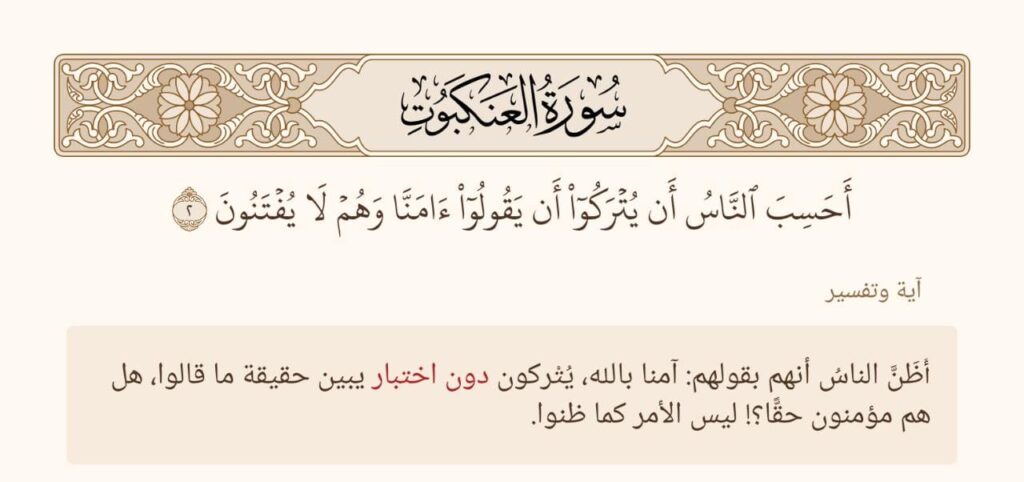 سُورَةُ العَنكَبُوتِ
أَحَسِبَ ٱلنَّاسُ أَن يُتۡرَكُوٓاْ أَن يَقُولُوٓاْ ءَامَنَّا وَهُمۡ لَا يُفۡتَنُونَ ٢
آية وتفسير
أظَنَّ الناسُ أنهم بقولهم: آمنا بالله، يُتْركون دون اختبار يبين حقيقة ما قالوا، هل
هم مؤمنون حقًّا؟! ليس الأمر كما ظنوا.